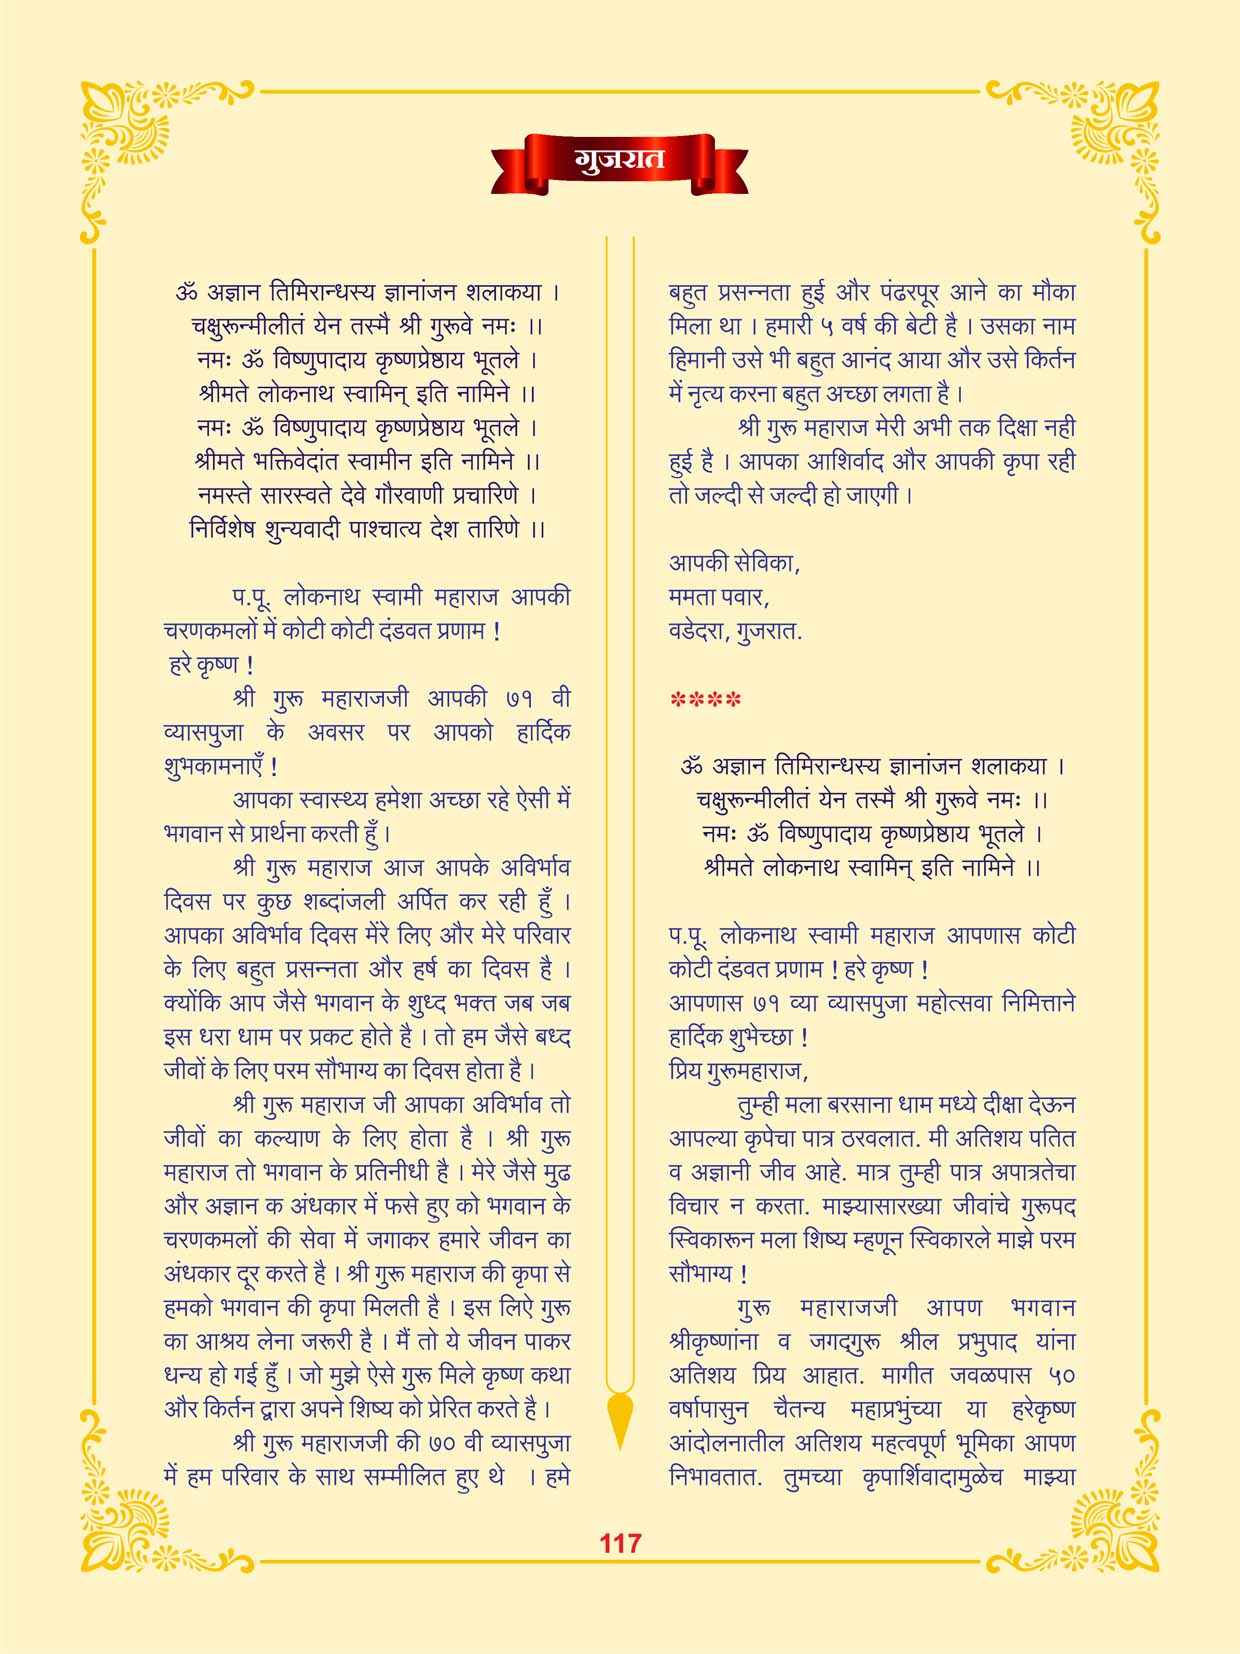 गुजरात
ॐ अज्ञान तिमिरान्धस्य ज्ञानांजन शलाकया ।
चक्षुरून्मीलीतं येन तस्मै श्री गुरूवे नमः ।।
नमः ॐ विष्णुपादाय कृष्णप्रेष्ठाय भूतले ।
श्रीमते लोकनाथ स्वामिन् इति नामिने ।।
नमः ॐ विष्णुपादाय कृष्णप्रेष्ठाय भूतले ।
श्रीमते भक्तिवेदांत स्वामीन इति नामिने ।।
नमस्ते सारस्वते देवे गौरवाणी प्रचारिणे ।
निर्विशेष शुन्यवादी पाश्चात्य देश तारिणे ।।
प.पू. लोकनाथ स्वामी महाराज आपकी
चरणकमलों में कोटी कोटी दंडवत प्रणाम !
हरे कृष्ण !
श्री गुरू महाराजजी आपकी ७१ वी
व्यासपुजा के अवसर पर आपको हार्दिक
शुभकामनाएँ !
आपका स्वास्थ्य हमेशा अच्छा रहे ऐसी में
भगवान से प्रार्थना करती हुँ ।
श्री गुरू महाराज आज आपके अविर्भाव
दिवस पर कुछ शब्दांजली अर्पित कर रही हुँ ।
आपका अविर्भाव दिवस मेंरे लिए और मेरे परिवार
के लिए बहुत प्रसन्नता और हर्ष का दिवस है ।
क्योंकि आप जैसे भगवान के शुध्द भक्त जब जब
इस धरा धाम पर प्रकट होते है । तो हम जैसे बध्द
जीवों के लिए परम सौभाग्य का दिवस होता है ।
श्री गुरू महाराज जी आपका अविर्भाव तो
जीवों का कल्याण के लिए होता है । श्री गुरू
महाराज तो भगवान के प्रतिनीधी है । मेरे जैसे मुढ
और अज्ञान क अंधकार में फसे हुए को भगवान के
चरणकमलों की सेवा में जगाकर हमारे जीवन का
अंधकार दूर करते है । श्री गुरू महाराज की कृपा से
हमको भगवान की कृपा मिलती है । इस लिऐ गुरू
का आश्रय लेना जरूरी है । मैं तो ये जीवन पाकर
धन्य हो गई हुँ । जो मुझे ऐसे गुरू मिले कृष्ण कथा
और किर्तन द्वारा अपने शिष्य को प्रेरित करते है ।
श्री गुरू महाराजजी की ७० वी व्यासपुजा
में हम परिवार के साथ सम्मीलित हुए थे । हमे
बहुत प्रसन्नता हुई और पंढरपूर आने का मौका
मिला था । हमारी ५ वर्ष की बेटी है । उसका नाम
हिमानी उसे भी बहुत आनंद आया और उसे किर्तन
में नृत्य करना बहुत अच्छा लगता है ।
श्री गुरू महाराज मेरी अभी तक दिक्षा नही
हुई है । आपका आशिर्वाद और आपकी कृपा रही
तो जल्दी से जल्दी हो जाएगी ।
आपकी सेविका,
ममता पवार,
वडेदरा, गुजरात.
****
ॐ अज्ञान तिमिरान्धस्य ज्ञानांजन शलाकया ।
चक्षुरून्मीलीतं येन तस्मै श्री गुरूवे नमः ।।
नमः ॐ विष्णुपादाय कृष्णप्रेष्ठाय भूतले ।
श्रीमते लोकनाथ स्वामिन् इति नामिने ।।
प.पू. लोकनाथ स्वामी महाराज आपणास कोटी
कोटी दंडवत प्रणाम ! हरे कृष्ण !
आपणास ७१ व्या व्यासपुजा महोत्सवा निमित्ताने
हार्दिक शुभेच्छा !
प्रिय गुरूमहाराज,
तुम्ही मला बरसाना धाम मध्ये दीक्षा देऊन
आपल्या कृपेचा पात्र ठरवलात. मी अतिशय पतित
व अज्ञानी जीव आहे. मात्र तुम्ही पात्र अपात्रतेचा
विचार न करता. माझ्यासारख्या जीवांचे गुरूपद
स्विकारून मला शिष्य म्हणून स्विकारले माझे परम
सौभाग्य !
गुरू महाराजजी आपण भगवान
श्रीकृष्णांना व जगद्गुरू श्रील प्रभुपाद यांना
अतिशय प्रिय आहात. मागीत जवळपास ५०
वर्षापासुन चैतन्य महाप्रभुंच्या या हरेकृष्ण
आंदोलनातील अतिशय महत्वपूर्ण भूमिका आपण
निभावतात. तुमच्या कृपार्शिवादामुळेच माझ्या
117